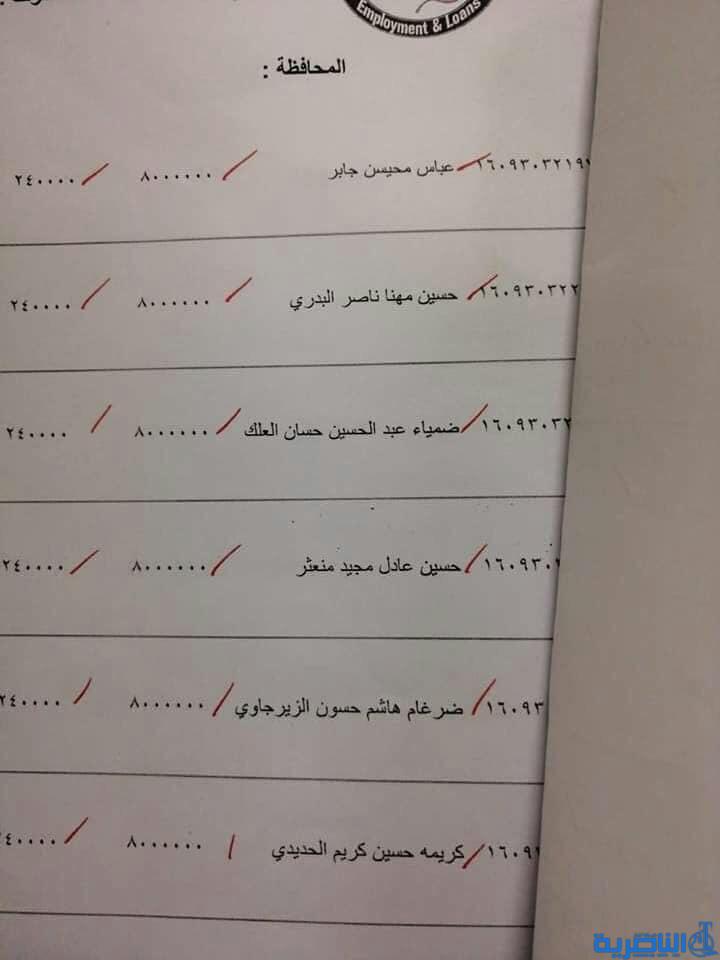 Employment & Loans
المحافظة :
١٦٠٩٣٠٣٢١٩ عباس محيسن جابر ٨٠٠٠٠٠٠ ٢٤٠٠٠٠
١٦٠٩٣٠٣٢٢ حسين مهنا ناصر البدري ٨٠٠٠٠٠٠ ٢٤٠٠٠٠
١٦٠٩٣٠٣٢ ضمياء عبد الحسين حسان العلك ٨٠٠٠٠٠٠ ٢٤٠٠٠٠
١٦٠٩٣٠ حسين عادل مجيد منعثر ٨٠٠٠٠٠٠ ٢٤٠٠٠٠
١٦٠٩٣ ضرغام هاشم حسون الزيرجاوي ٨٠٠٠٠٠٠ ٢٤٠٠٠٠
١٦٠٩ كريمه حسين كريم الحديدي ٨٠٠٠٠٠٠ ٤٠٠٠٠
الناصرية